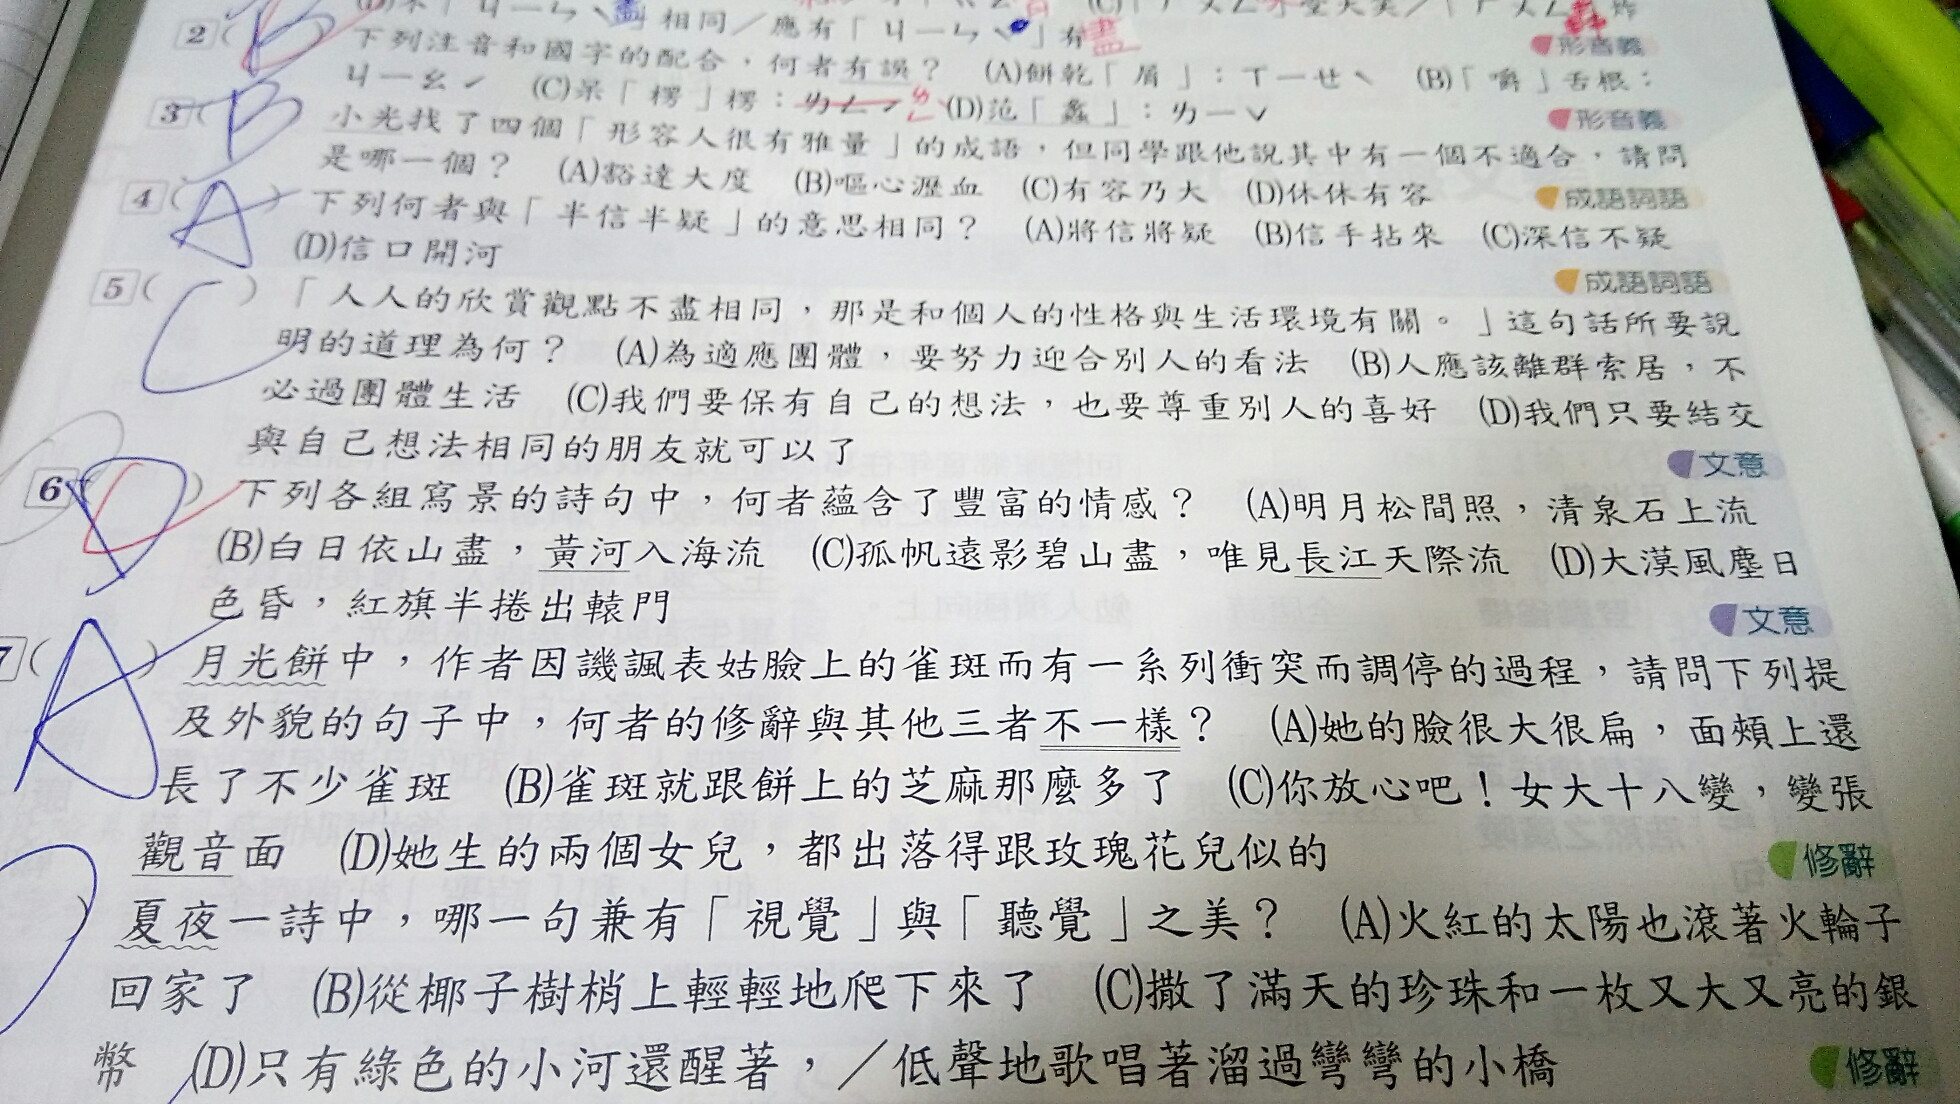 相同／應有「ㄐㄧㄣˋ」有盡
形音義
2 ( B ) 下列注音和國字的配合，何者有誤？ (A)餅乾「屑」：ㄒㄧㄝˋ (B)「嚼」舌根：
ㄐㄧㄠˊ (C)呆「楞」楞：ㄌㄥˊ (D)范「蠡」：ㄌㄧˇ
形音義
3 ( B 小光找了四個「形容人很有雅量」的成語，但同學跟他說其中有一個不適合，請問
是哪一個？ (A)豁達大度 (B)嘔心瀝血 (C)有容乃大 (D)休休有容
成語詞語
4 ( A ) 下列何者與「半信半疑」的意思相同？ (A)將信將疑 (B)信手拈來 (C)深信不疑
(D)信口開河
成語詞語
5 ( C ) 「人人的欣賞觀點不盡相同，那是和個人的性格與生活環境有關。」這句話所要說
明的道理為何？ (A)為適應團體，要努力迎合別人的看法 (B)人應該離群索居，不
必過團體生活 (C)我們要保有自己的想法，也要尊重別人的喜好 (D)我們只要結交
與自己想法相同的朋友就可以了
文意
6 ( D ) 下列各組寫景的詩句中，何者蘊含了豐富的情感？ (A)明月松間照，清泉石上流
(B)白日依山盡，黃河入海流 (C)孤帆遠影碧山盡，唯見長江天際流 (D)大漠風塵日
色昏，紅旗半捲出轅門
文意
7 ( A ) 月光餅中，作者因譏諷表姑臉上的雀斑而有一系列衝突而調停的過程，請問下列提
及外貌的句子中，何者的修辭與其他三者不一樣？ (A)她的臉很大很扁，面頰上還
長了不少雀斑 (B)雀斑就跟餅上的芝麻那麼多了 (C)你放心吧！女大十八變，變張
觀音面 (D)她生的兩個女兒，都出落得跟玫瑰花兒似的
修辭
) 夏夜一詩中，哪一句兼有「視覺」與「聽覺」之美？ (A)火紅的太陽也滾著火輪子
回家了 (B)從椰子樹梢上輕輕地爬下來了 (C)撒了滿天的珍珠和一枚又大又亮的銀
幣 (D)只有綠色的小河還醒著，／低聲地歌唱著溜過彎彎的小橋
修辭